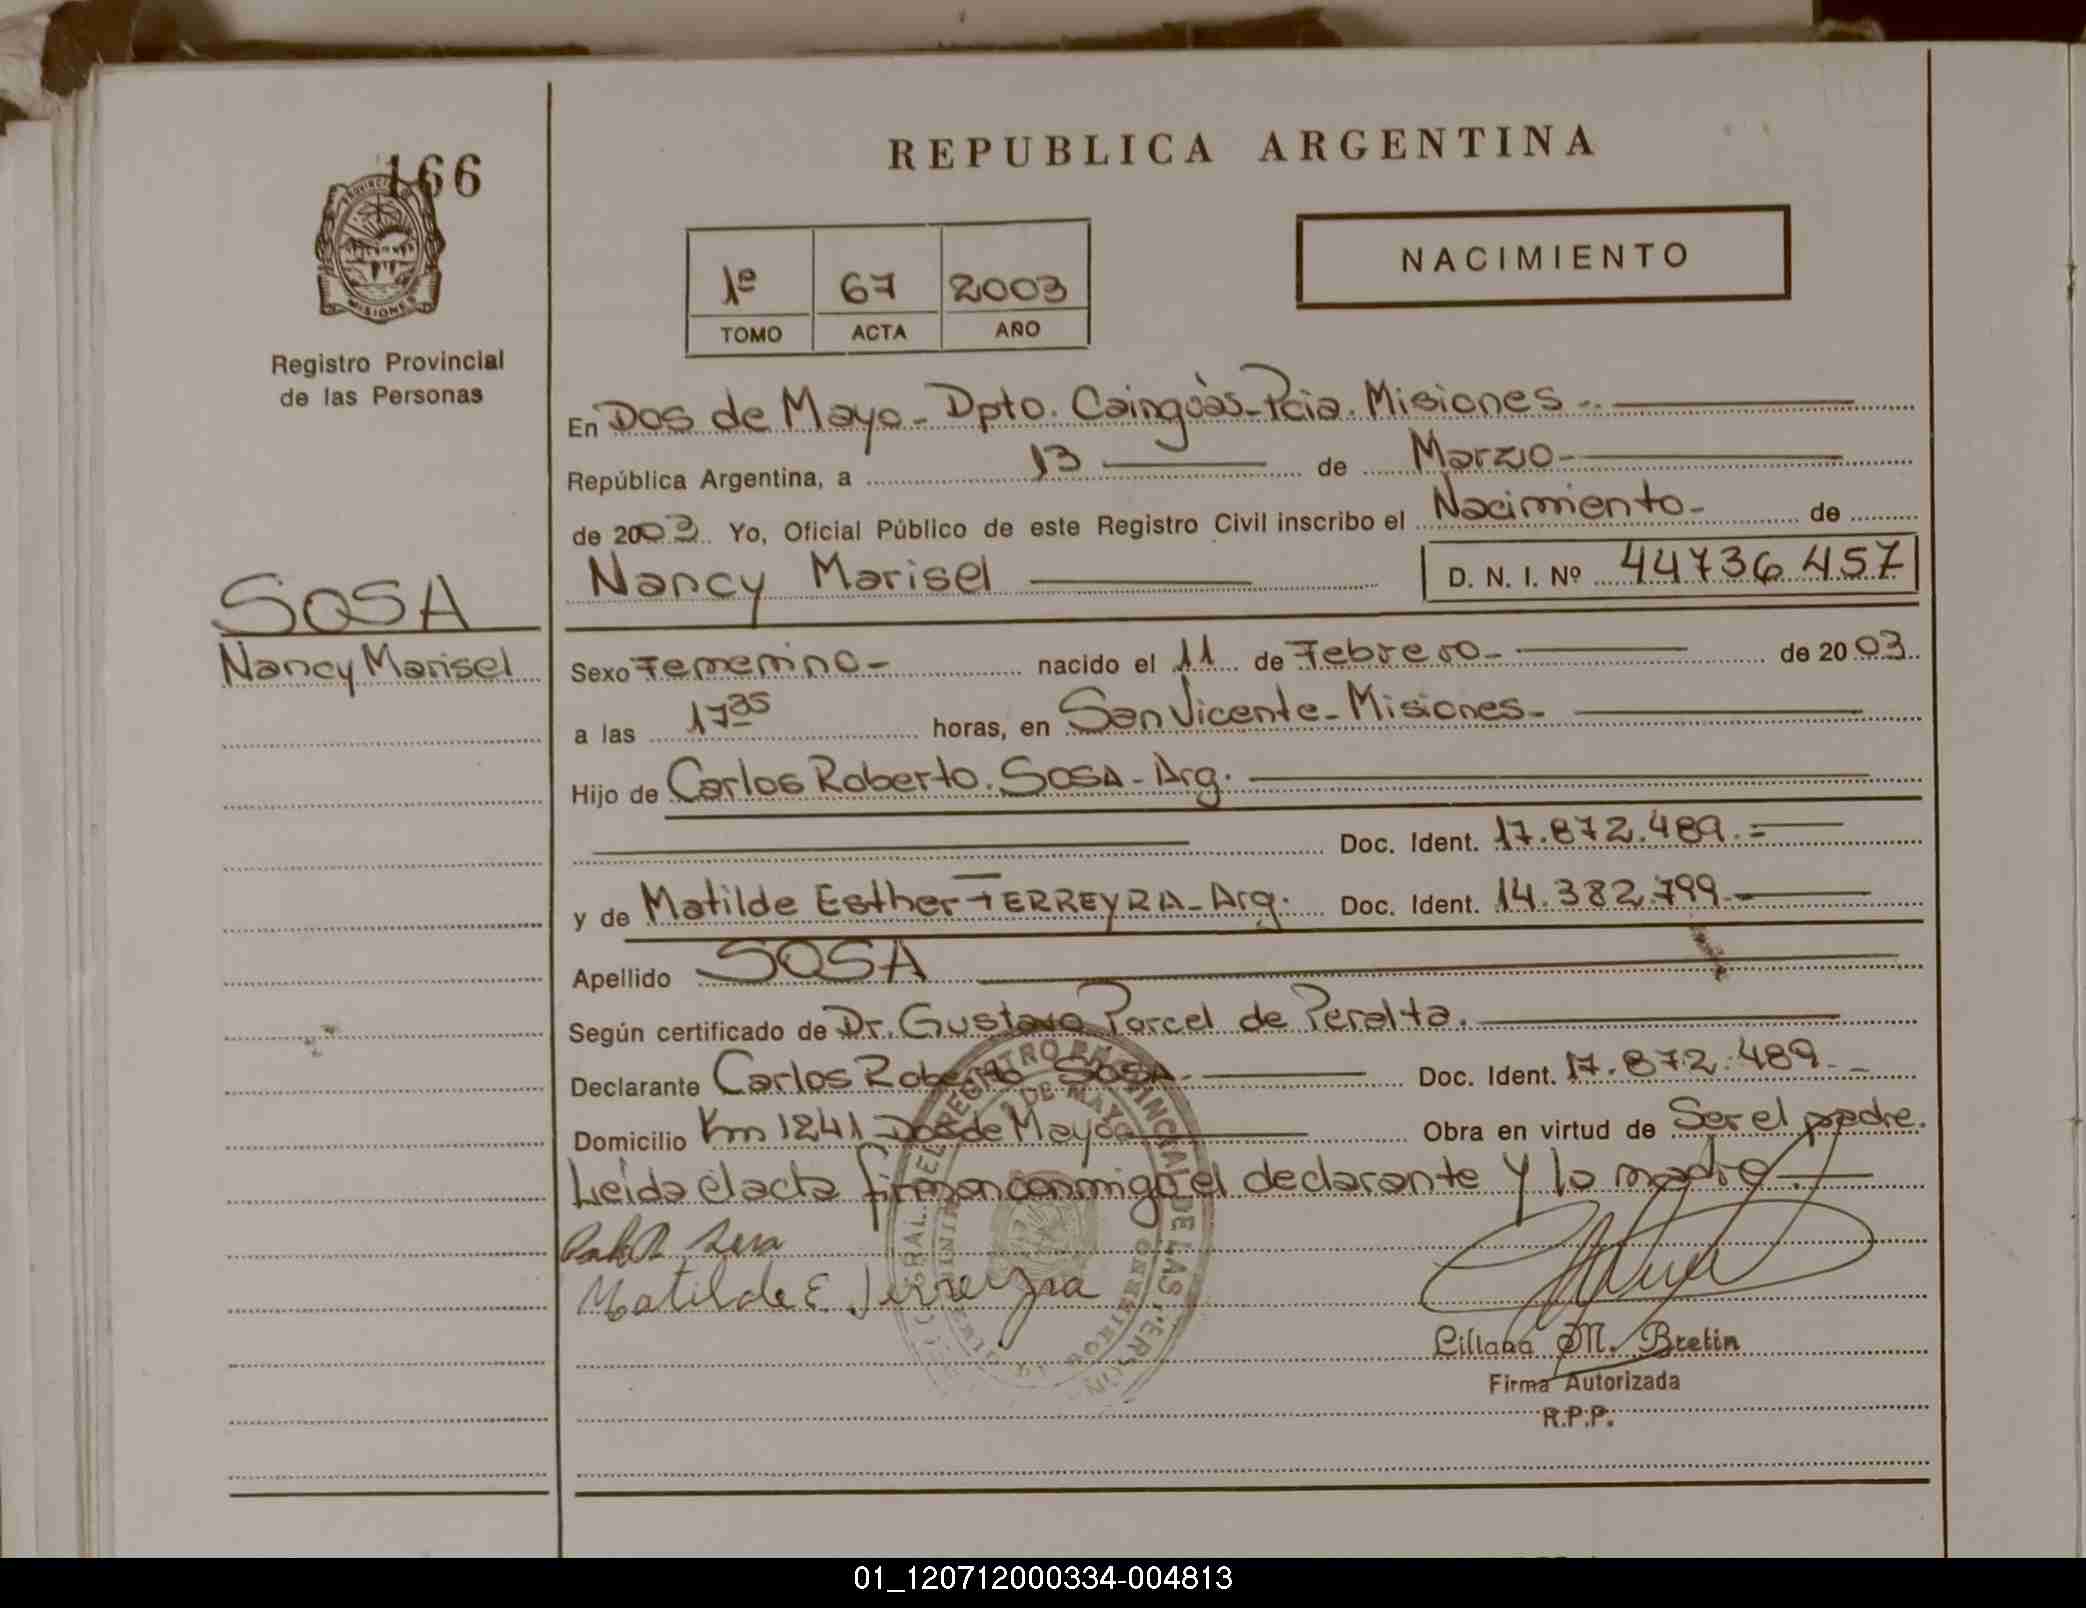 166
PROVINCIA
MISIONES
Registro Provincial
de las Personas
SOSA
Nancy Marisel
REPUBLICA ARGENTINA
1º 67 2003
TOMO ACTA AÑO
NACIMIENTO
En Dos de Mayo- Dpto. Cainguàs-Pcia. Misiones-
República Argentina, a 13 de Marzo-
de 2003 Yo, Oficial Público de este Registro Civil inscribo el Nacimiento- de
Nancy Marisel D. N. I. Nº 44736457
Sexo Femenino- nacido el 11 de Febrero- de 2003.
a las 17 35 horas, en San Vicente- Misiones-
Hijo de Carlos Roberto. SOSA- Arg.
Doc. Ident. 17.872.489.=
y de Matilde Esther FERREYRA- Arg. Doc. Ident. 14.382.799-
Apellido SOSA
Según certificado de Dr. Gustavo Porcel de Peralta.
Declarante Carlos Roberto SOSA- Doc. Ident. 17.872.489-
Domicilio Km 1241 Dos de Mayo Obra en virtud de Ser el padre.
Leída el acta firman conmigo el declarante y la madre.-
Sosa
Matilde E. Ferreyra
Liliana M. Bretin
Firma Autorizada
R.P.P.
01_120712000334-004813